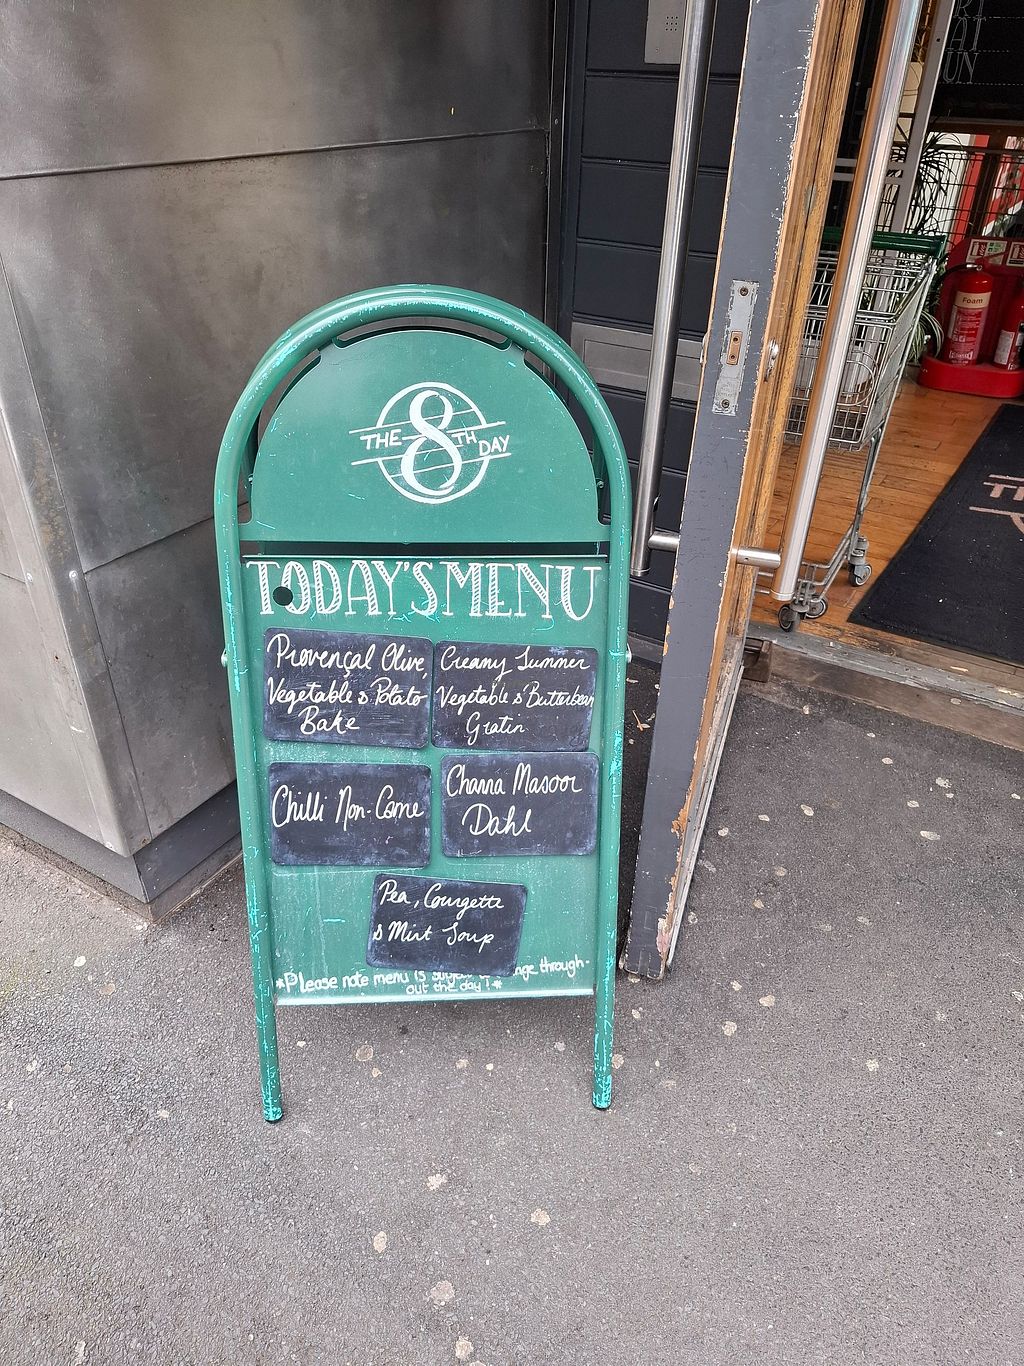 THE 8TH DAY
TODAY'S MENU
Provençal Olive,
Vegetable & Potato
Bake
Creamy Summer
Vegetable & Butterbean
Gratin
Chilli Non-Carne
Channa Masoor
Dahl
Pea, Courgette
& Mint Soup
*Please note menu is subject through-
out the day!*
Foam